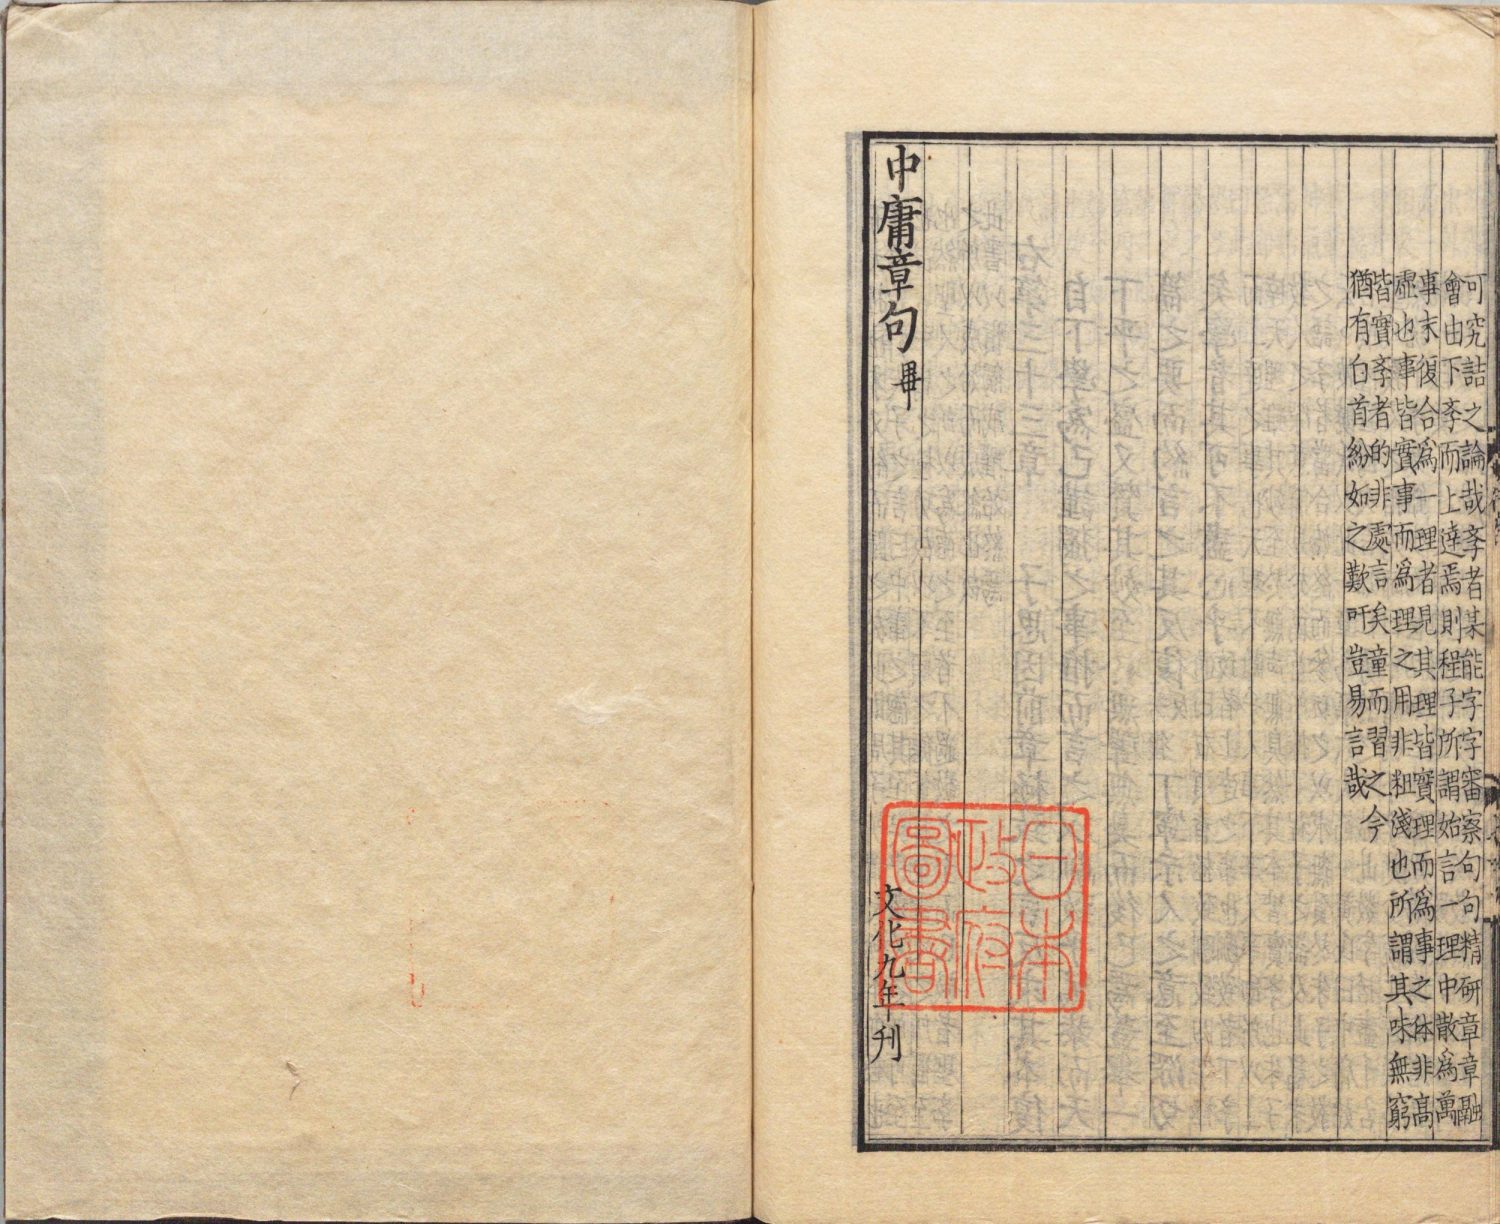 可究詰之論哉斈者某能字字審察句句精研章章融
會由下斈而上達焉則程子所謂始言一理中散爲萬
事末復合爲一理者見其理皆實理而爲事之体非高
虛也事皆實事而爲理之用非粗淺也所謂其味無窮
皆實斈者的非處言矣童而習之今
猶有白首紛如之歎吁豈易言哉
中庸章句畢
文化九年刊
日本
政府
圖書